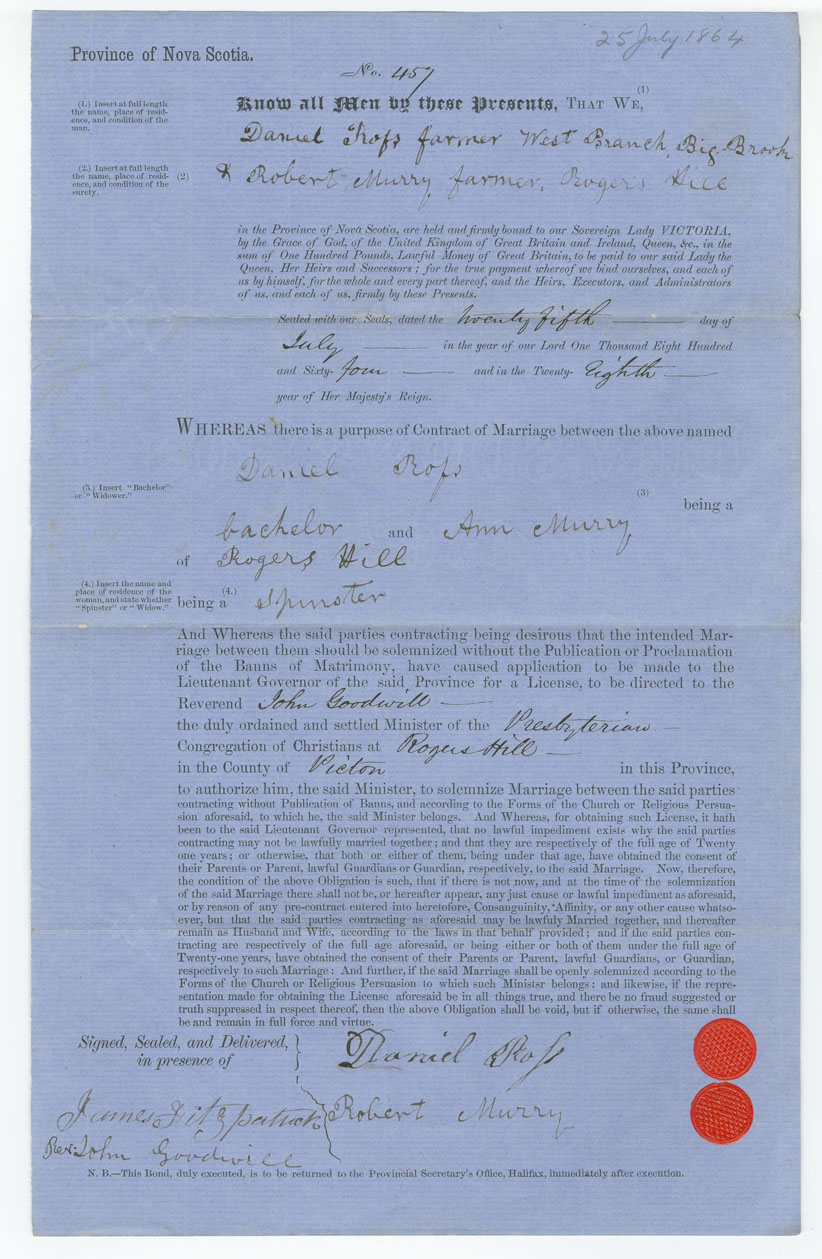 25 July 1864
Province of Nova Scotia.
No. 457
(1)
Know all Men by these Presents, THAT WE,
(1.) Insert at full length
the name, place of resid-
ence, and condition of the
man.
Daniel Ross farmer West Branch, Big Brook
(2.) Insert at full length
the name, place of resid-
ence, and condition of the
surety.
(2)
& Robert Murry farmer, Rogers Hill
in the Province of Nova Scotia, are held and firmly bound to our Sovereign Lady VICTORIA,
by the Grace of God, of the United Kingdom of Great Britain and Ireland, Queen, &c., in the
sum of One Hundred Pounds, Lawful Money of Great Britain, to be paid to our said Lady the
Queen, Her Heirs and Successors; for the true payment whereof we bind ourselves, and each of
us by himself, for the whole and every part thereof, and the Heirs, Executors, and Administrators
of us, and each of us, firmly by these Presents.
Sealed with our Seals, dated the twenty fifth day of
July in the year of our Lord One Thousand Eight Hundred
and Sixty- four and in the Twenty- Eighth
year of Her Majesty's Reign.
WHEREAS there is a purpose of Contract of Marriage between the above named
Daniel Ross
(3.) Insert "Bachelor"
or "Widower."
(3)
being a
bachelor and Ann Murry
of Rogers Hill
(4.) Insert the name and
place of residence of the
woman, and state whether
"Spinster" or "Widow."
(4.)
being a Spinster
And Whereas the said parties contracting being desirous that the intended Mar-
riage between them should be solemnized without the Publication or Proclamation
of the Banns of Matrimony, have caused application to be made to the
Lieutenant Governor of the said Province for a License, to be directed to the
Reverend John Goodwill
the duly ordained and settled Minister of the Presbyterian
Congregation of Christians at Rogers Hill
in the County of Pictou in this Province,
to authorize him, the said Minister, to solemnize Marriage between the said parties
contracting without Publication of Banns, and according to the Forms of the Church or Religious Persua-
sion aforesaid, to which he, the said Minister belongs. And Whereas, for obtaining such License, it hath
been to the said Lieutenant Governor represented, that no lawful impediment exists why the said parties
contracting may not be lawfully married together; and that they are respectively of the full age of Twenty
one years; or otherwise, that both or either of them, being under that age, have obtained the consent of
their Parents or Parent, lawful Guardians or Guardian, respectively, to the said Marriage. Now, therefore,
the condition of the above Obligation is such, that if there is not now, and at the time of the solemnization
of the said Marriage there shall not be, or hereafter appear, any just cause or lawful impediment as aforesaid,
or by reason of any pre-contract entered into heretofore, Consanguinity, Affinity, or any other cause whatso-
ever, but that the said parties contracting as aforesaid may be lawfuly Married together, and thereafter
remain as Husband and Wife, according to the laws in that behalf provided; and if the said parties con-
tracting are respectively of the full age aforesaid, or being either or both of them under the full age of
Twenty-one years, have obtained the consent of their Parents or Parent, lawful Guardians, or Guardian,
respectively to such Marriage: And further, if the said Marriage shall be openly solemnized according to the
Forms of the Church or Religious Persuasion to which such Minister belongs: and likewise, if the repre-
sentation made for obtaining the License aforesaid be in all things true, and there be no fraud suggested or
truth suppressed in respect thereof, then the above Obligation shall be void, but if otherwise, the same shall
be and remain in full force and virtue.
Signed, Sealed, and Delivered,
in presence of
Daniel Ross
James Fitzpatrick
Robert Murry
Rev: John Goodwill
N. B.—This Bond, duly executed, is to be returned to the Provincial Secretary's Office, Halifax, immediately after execution.